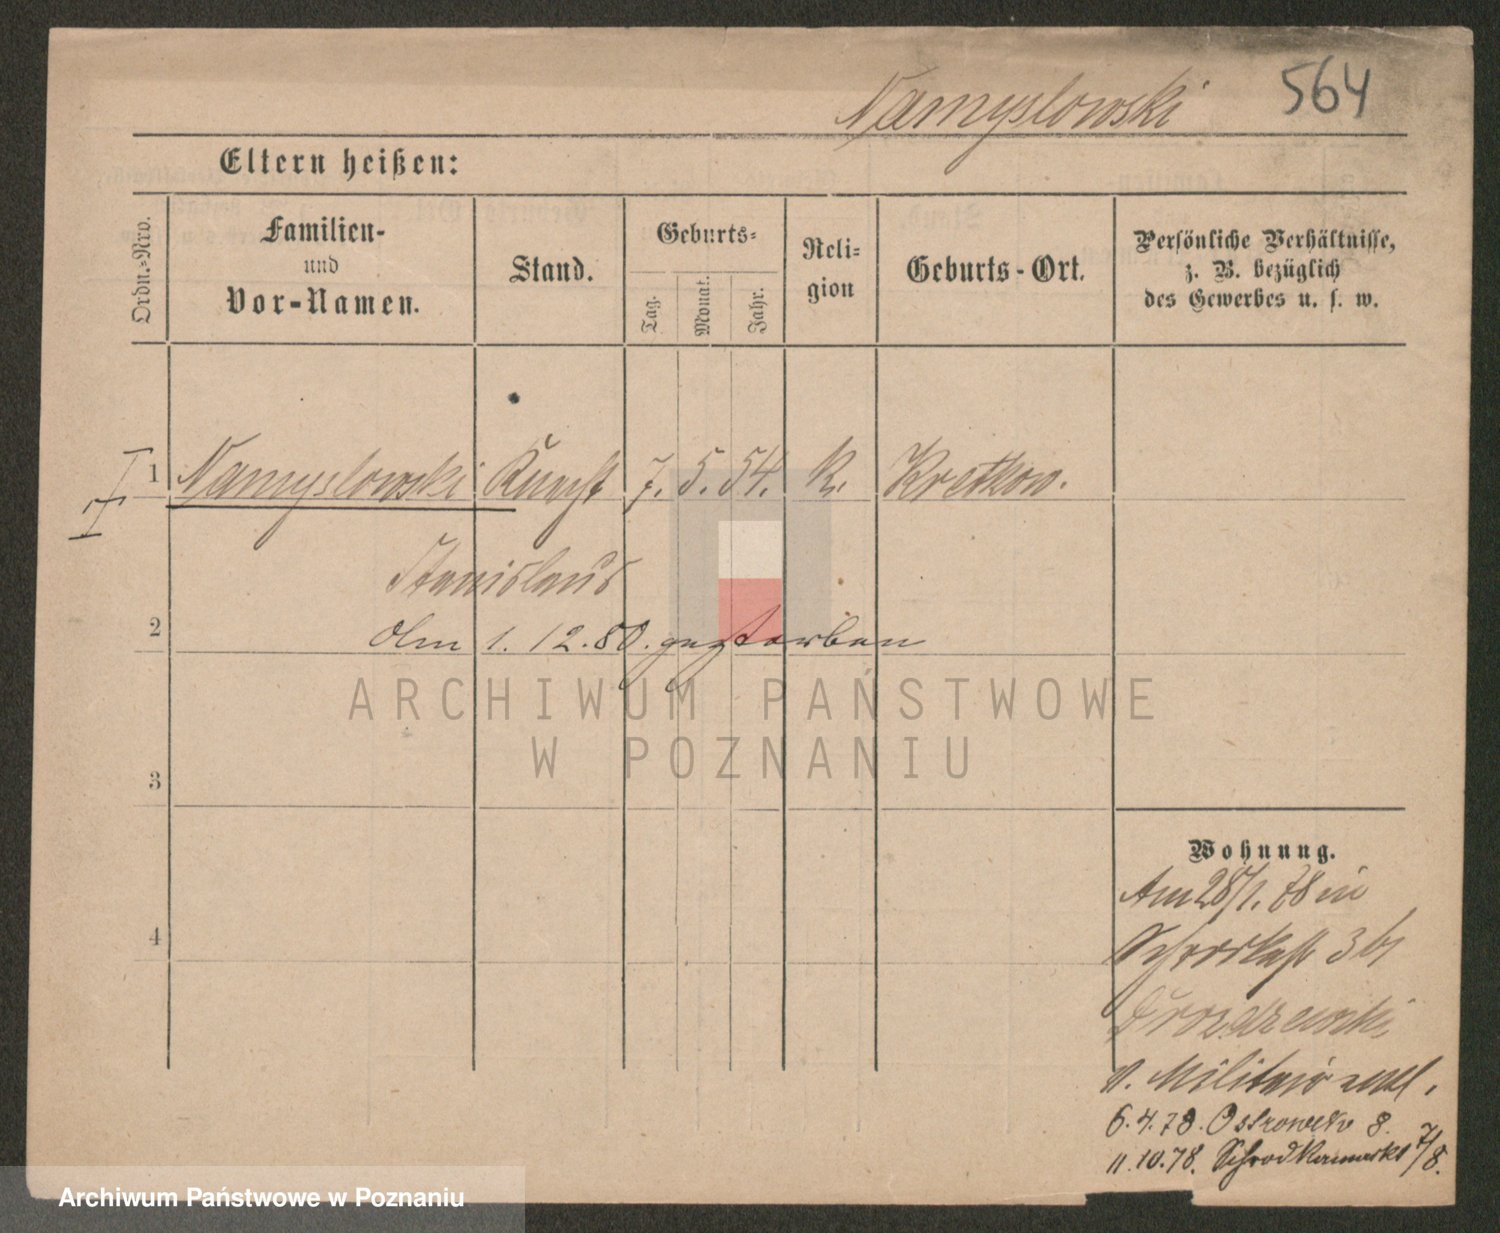 Namyslowski 564
Eltern heißen:
Ordn.-Nro.
Familien-
und
Vor-Namen.
Stand.
Geburts-
Tag.
Monat.
Jahr.
Reli-
gion
Geburts-Ort.
Persönliche Verhältnisse,
z. B. bezüglich
des Gewerbes u. s. w.
1 Namyslowski 7. 5. 54. k. Kretkow.
Stanislaus
2 Am 1. 12. 80. gestorben
ARCHIWUM PAŃSTWOWE
W POZNANIU
3
Wohnung.
Am 28/1. 78 in
4
3 bei
v. Militair
6. 4. 78. Ostrowek 8.
11. 10. 78. Schrodkamarkt 7/8.
Archiwum Państwowe w Poznaniu